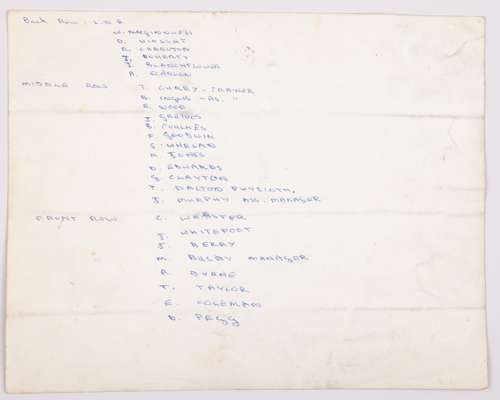 Back Row: L TO R
W. MAGUINNESS
D. VIOLLET
R. CHARLTON
J. DOHERTY
J. BLANCHFLOWER
A. DAWSON
MIDDLE ROW T. CURRY - TRAINER
B. INGLIS - AS. "
R. WOOD
J. GREAVES
B. FOULKES
F. GOODWIN
G. WHELAN
M. JONES
D. EDWARDS
G. CLAYTON
T. DALTON PHYSIOTH.
J. MURPHY AS. MANAGER
FRONT ROW C. WEBSTER
J. WHITEFOOT
J. BERRY
M. BUSBY MANAGER
R. BYRNE
T. TAYLOR
E. COLEMAN
D. PEGG